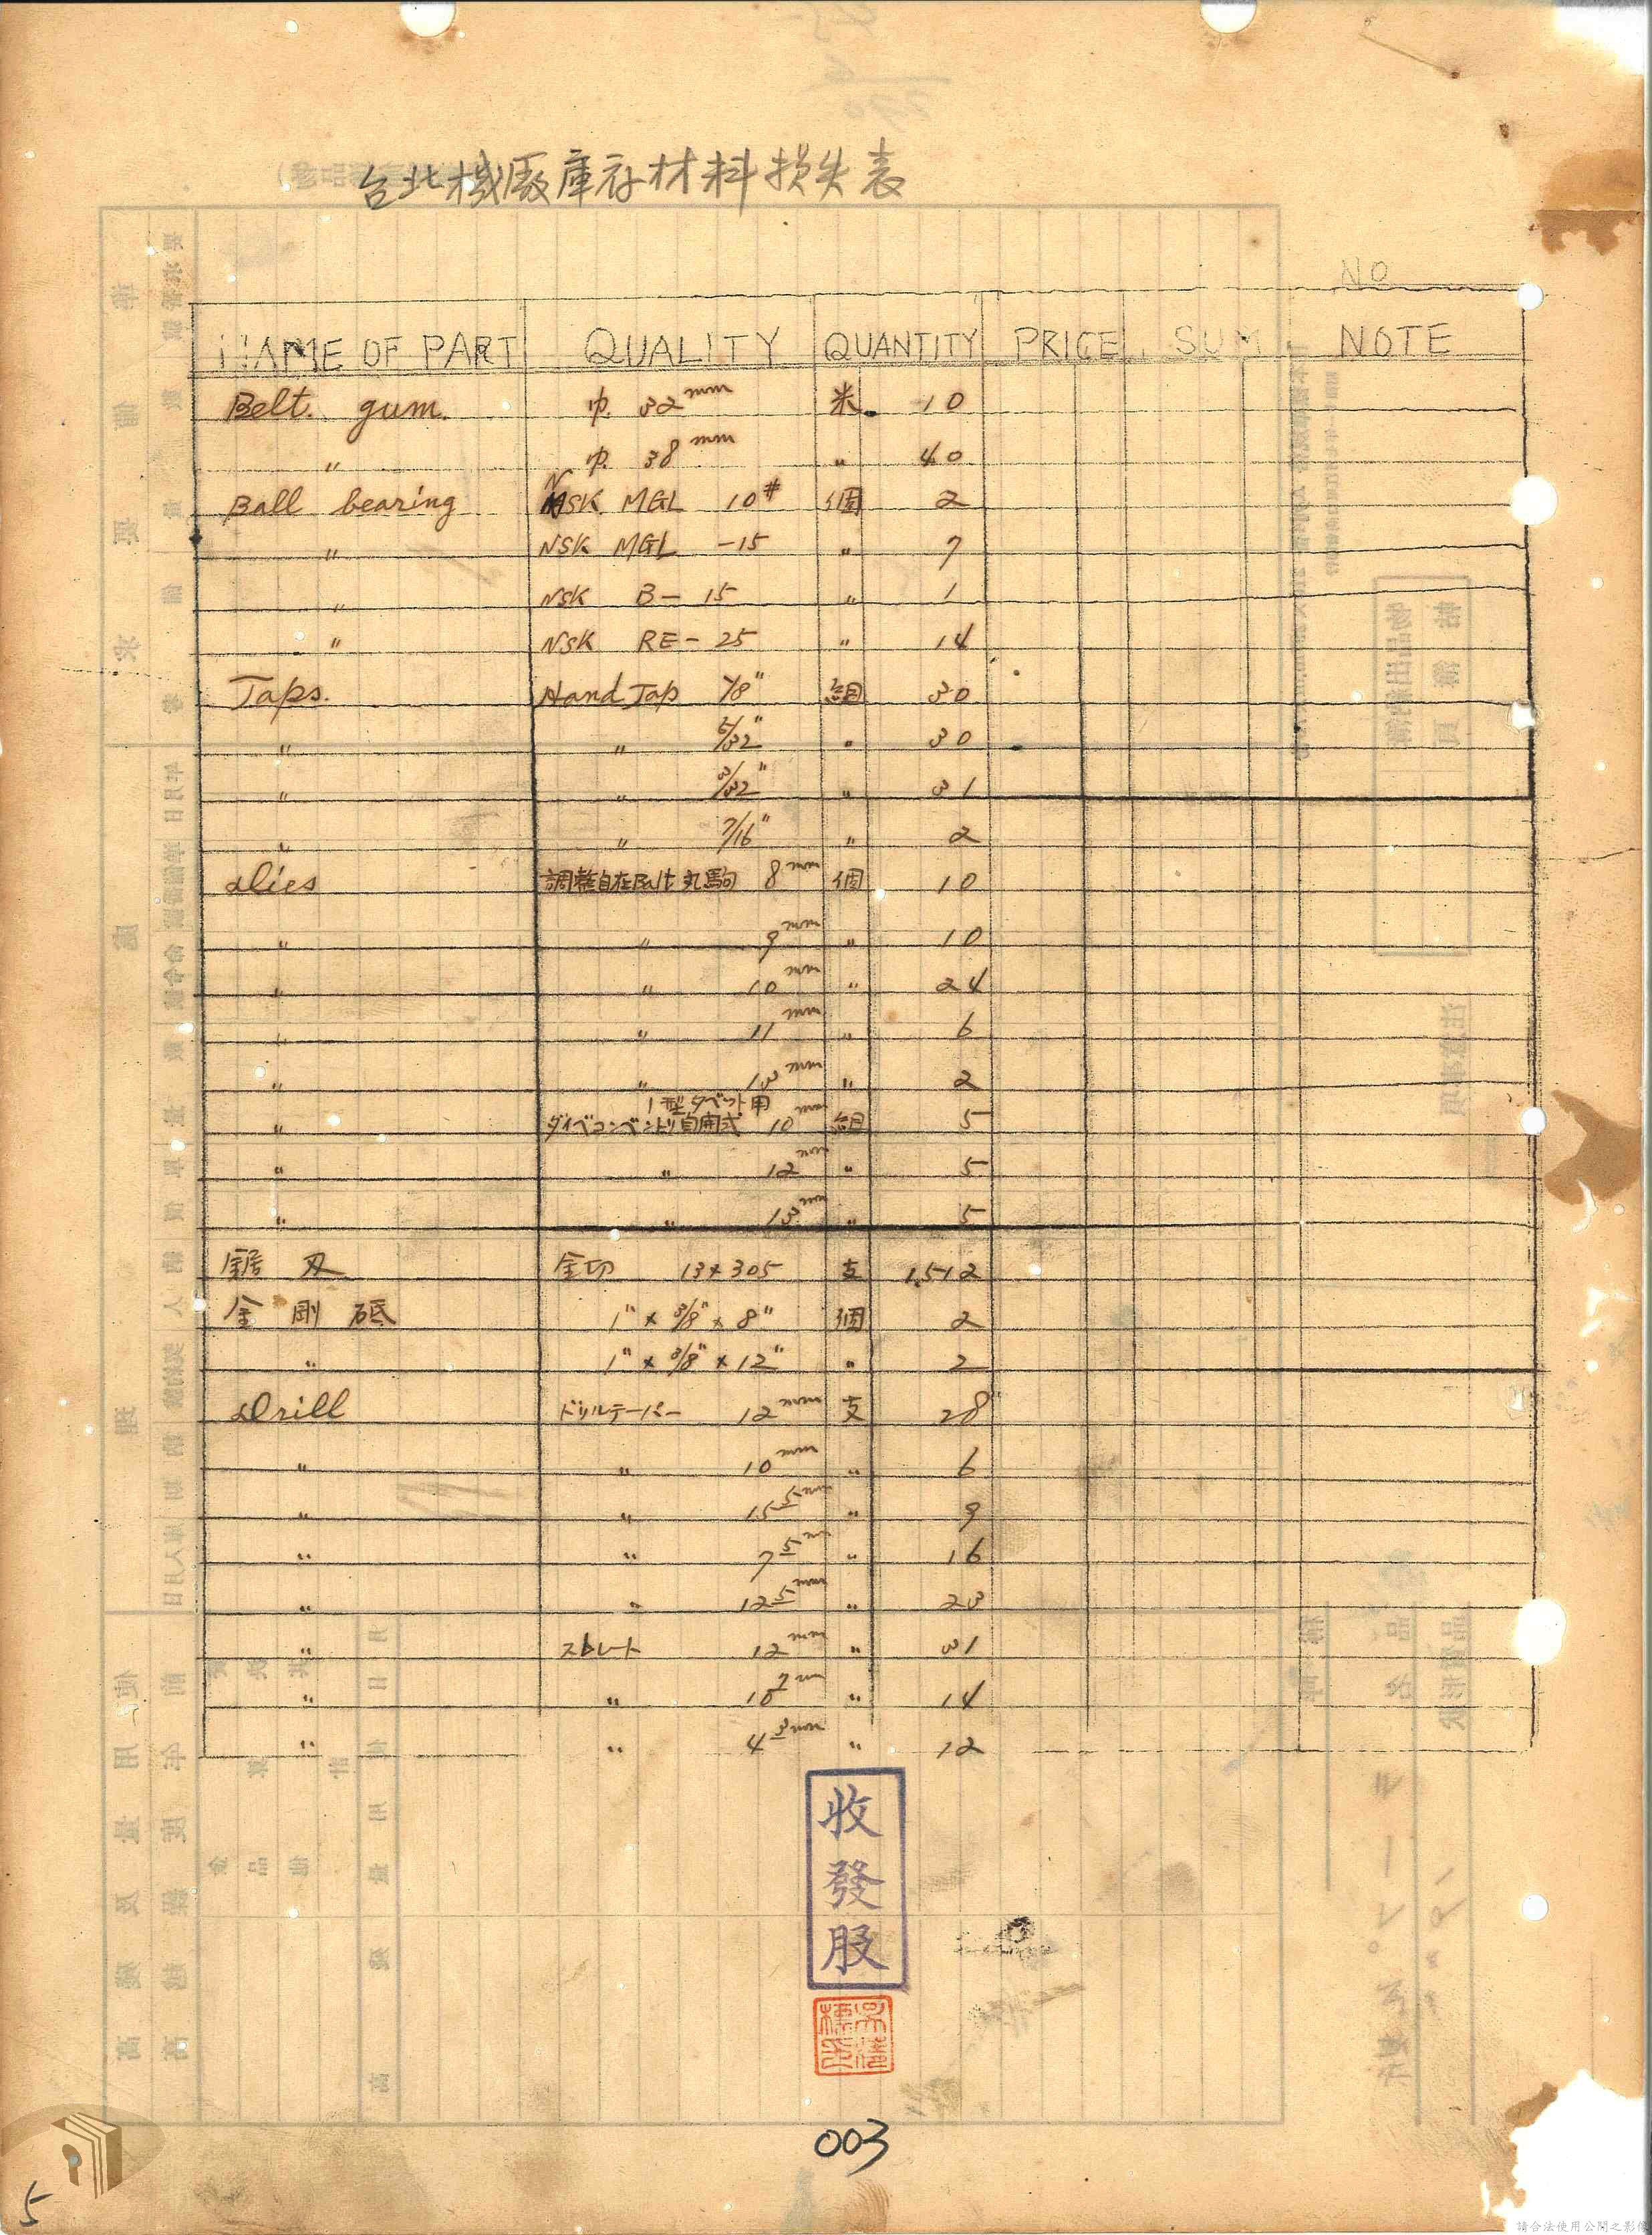 台北機廠庫存材料損失表
NO
NAME OF PART QUALITY QUANTITY PRICE SUM NOTE
Belt. gum. 巾. 32mm 米. 10
〃 巾. 38mm 〃 40
Ball bearing NSK MGL 10# 個 2
〃 NSK MGL -15 〃 7
〃 NSK B-15 〃 1
〃 NSK RE-25 〃 14
Taps. Hand Tap 7/8" 組 30
〃 〃 5/32" 〃 30
〃 〃 3/32" 〃 31
〃 〃 7/16" 〃 2
dies 調整自在Bolt丸駒 8mm 個 10
〃 〃 9mm 〃 10
〃 〃 10mm 〃 24
〃 〃 11mm 〃 6
〃 〃 13mm 〃 2
1型タベット用
〃 自開式 10mm 組 5
〃 〃 12mm 〃 5
〃 〃 13mm 〃 5
鋸刄 金切 13×305 支 1,512
金剛砥 1"×3/8"×8" 個 2
〃 1"×3/8"×12" 〃 2
Drill ドリルテーパー 12mm 支 28
〃 〃 10mm 〃 6
〃 〃 15 5mm 〃 9
〃 〃 7 5m 〃 16
〃 〃 12 5mm 〃 23
〃 ストレート 12mm 〃 31
〃 〃 10 2m 〃 14
〃 〃 4 3mm 〃 12
收發股
003
5
請合法使用公開之影像